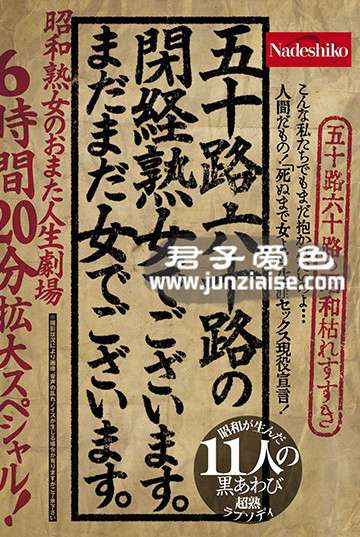 Nadeshiko
五十路六十路の
閉経熟女でございます。
まだまだ女でございます。
こんな私たちでもまだ抱か
人間だもの!「死ぬまで女よ
セックス現役宣言!
五十路六十路
和枯れすすき
昭和熟女のおまた人生劇場
6時間20分拡大スペシャル!
君子爱色
www.junziaise.com
昭和が生んだ
11人の
黒あわび
超熟
ラプソディ